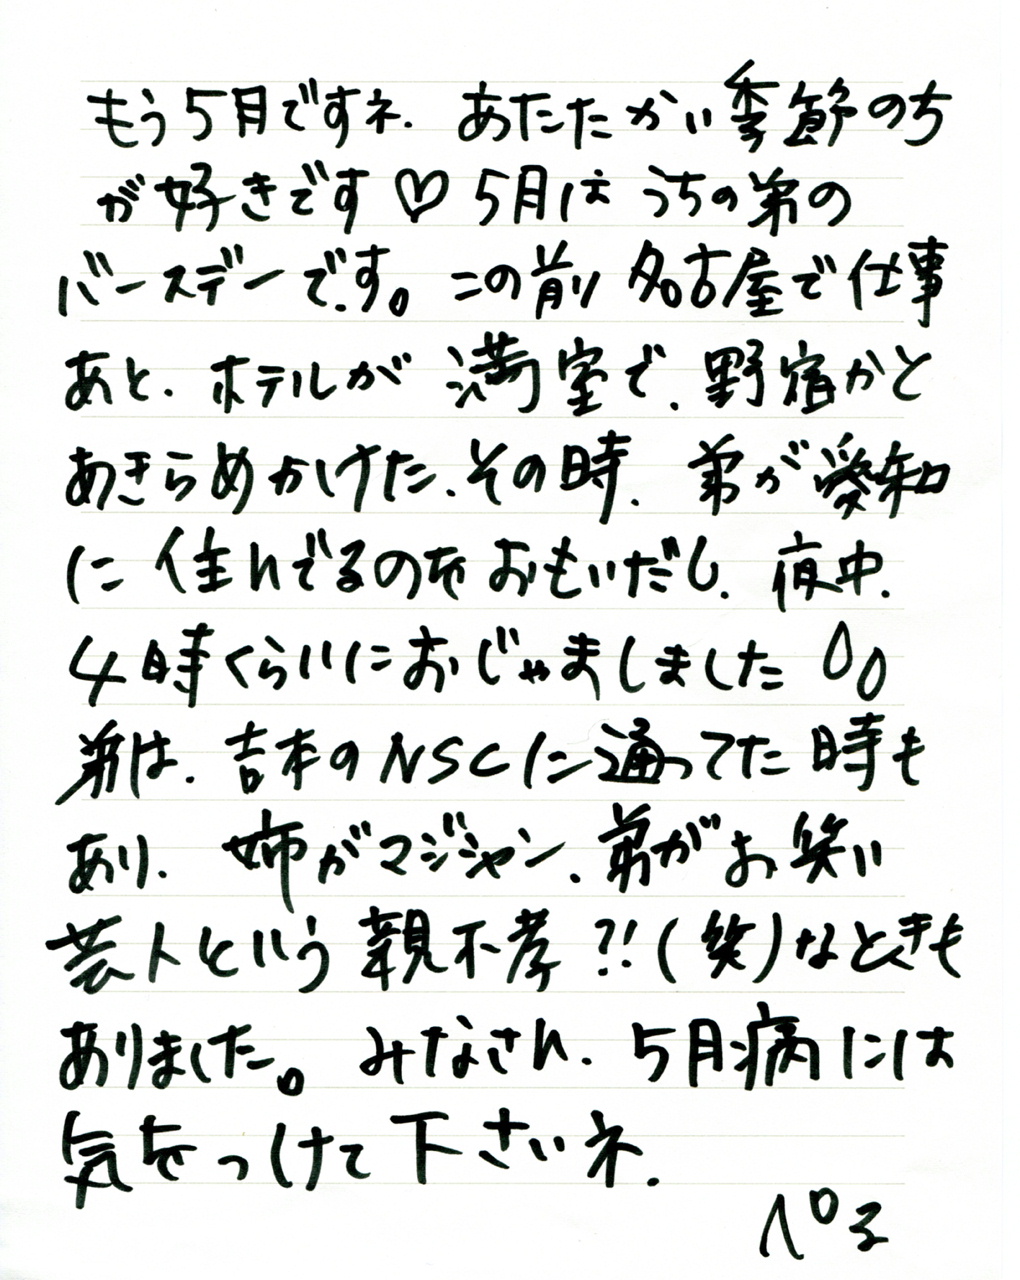 もう5月ですネ. あたたかい季節のち
が好きです♡ 5月は うちの弟の
バースデーです。この前 名古屋で仕事
あと、ホテルが 満室で、野宿かと
あきらめかけた、その時、弟が愛知
に 住んでるのを おもいだし、夜中、
4時くらいにおじゃましました
弟は、吉本のNSCに通ってた時も
あり、姉がマジシャン、弟がお笑い
芸人という親不孝?!(笑)なときも
ありました。みなさん、5月病には
気をつけて下さいネ.
ペる